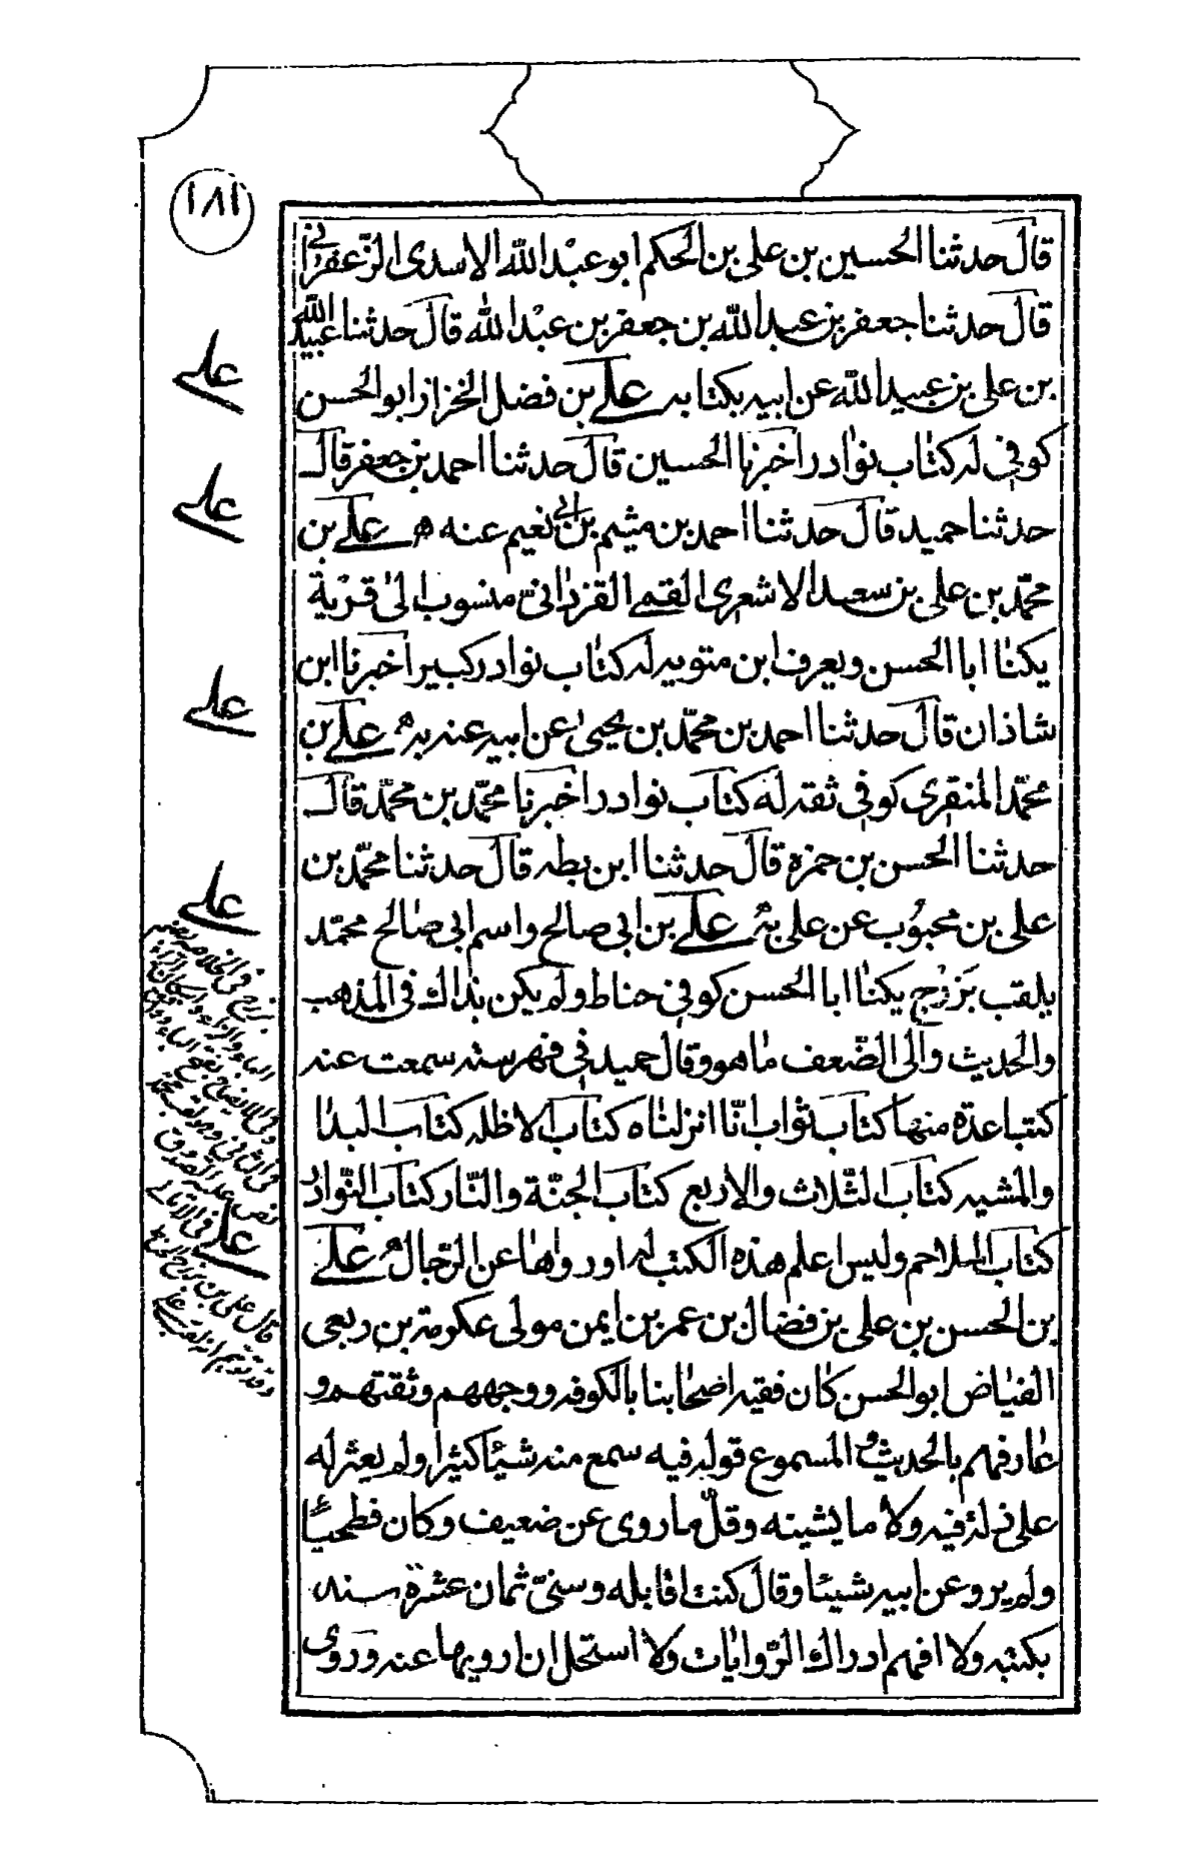 ١٨١
قال حدثنا الحسين بن على بن الحكم ابو عبد الله الاسدى الزّعفرانى
قال حدثنا جعفر بن عبد الله بن جعفر بن عبد الله قال حدثنا عبيد الله
بن على بن عبيد الله عن ابيه بكتابه على بن فضل الخزاز ابو الحسن
كوفى له كتاب نوادر اخبرنا الحسين قال حدثنا احمد بن جعفر قال
حدثنا حميد قال حدثنا احمد بن ميثم بن ابى نعيم عنه ه على بن
محمّد بن على بن سعد الاشعرى القمى القزدانىّ منسوب الى قرية
يكنا ابا الحسن ويعرف ابن متويه له كتاب نوادر كبير اخبرنا ابن
شاذان قال حدثنا احمد بن محمّد بن يحيى عن ابيه عنه به على بن
محمّد المنقرى كوفى ثقه له كتاب نوادر اخبرنا محمّد بن محمّد قال
حدثنا الحسن بن حمزه قال حدثنا ابن بطه قال حدثنا محمّد بن
على بن محبوب عن على به على بن ابى صالح واسم ابى صالح محمّد
يلقب بزرج يكنا ابا الحسن كوفى حناط ولم يكن بذاك فى المذهب
والحديث والى الضّعف ما هو وقال حميد فى فهرسته سمعت عنه
كتبا عدة منها كتاب ثواب انّا انزلناه كتاب الاظله كتاب البدا
والمشيه كتاب الثلاث والاربع كتاب الجنّة والنّار كتاب النّوادر
كتاب الملاحم وليس اعلم هذه الكتب له او رواها عن الرّجال على
بن الحسن بن على بن فضال بن عمر بن ايمن مولى عكرمة بن ربعى
الفياض ابو الحسن كان فقيه اصحابنا بالكوفه ووجههم وثقتهم و
عارفهم بالحديث والمسموع قوله فيه سمع منه شيئا كثيرا ولم يعثر له
على زلة فيه ولا ما يشينه وقلّ ما روى عن ضعيف وكان فطحيّا
ولم يرو عن ابيه شيئا وقال كنت اقابله وسنىّ ثمان عشرة سنه
بكتبه ولا افهم اذ ذاك الرّوايات ولا استحل ان ارويها عنه وروى
على
على
على
على
على